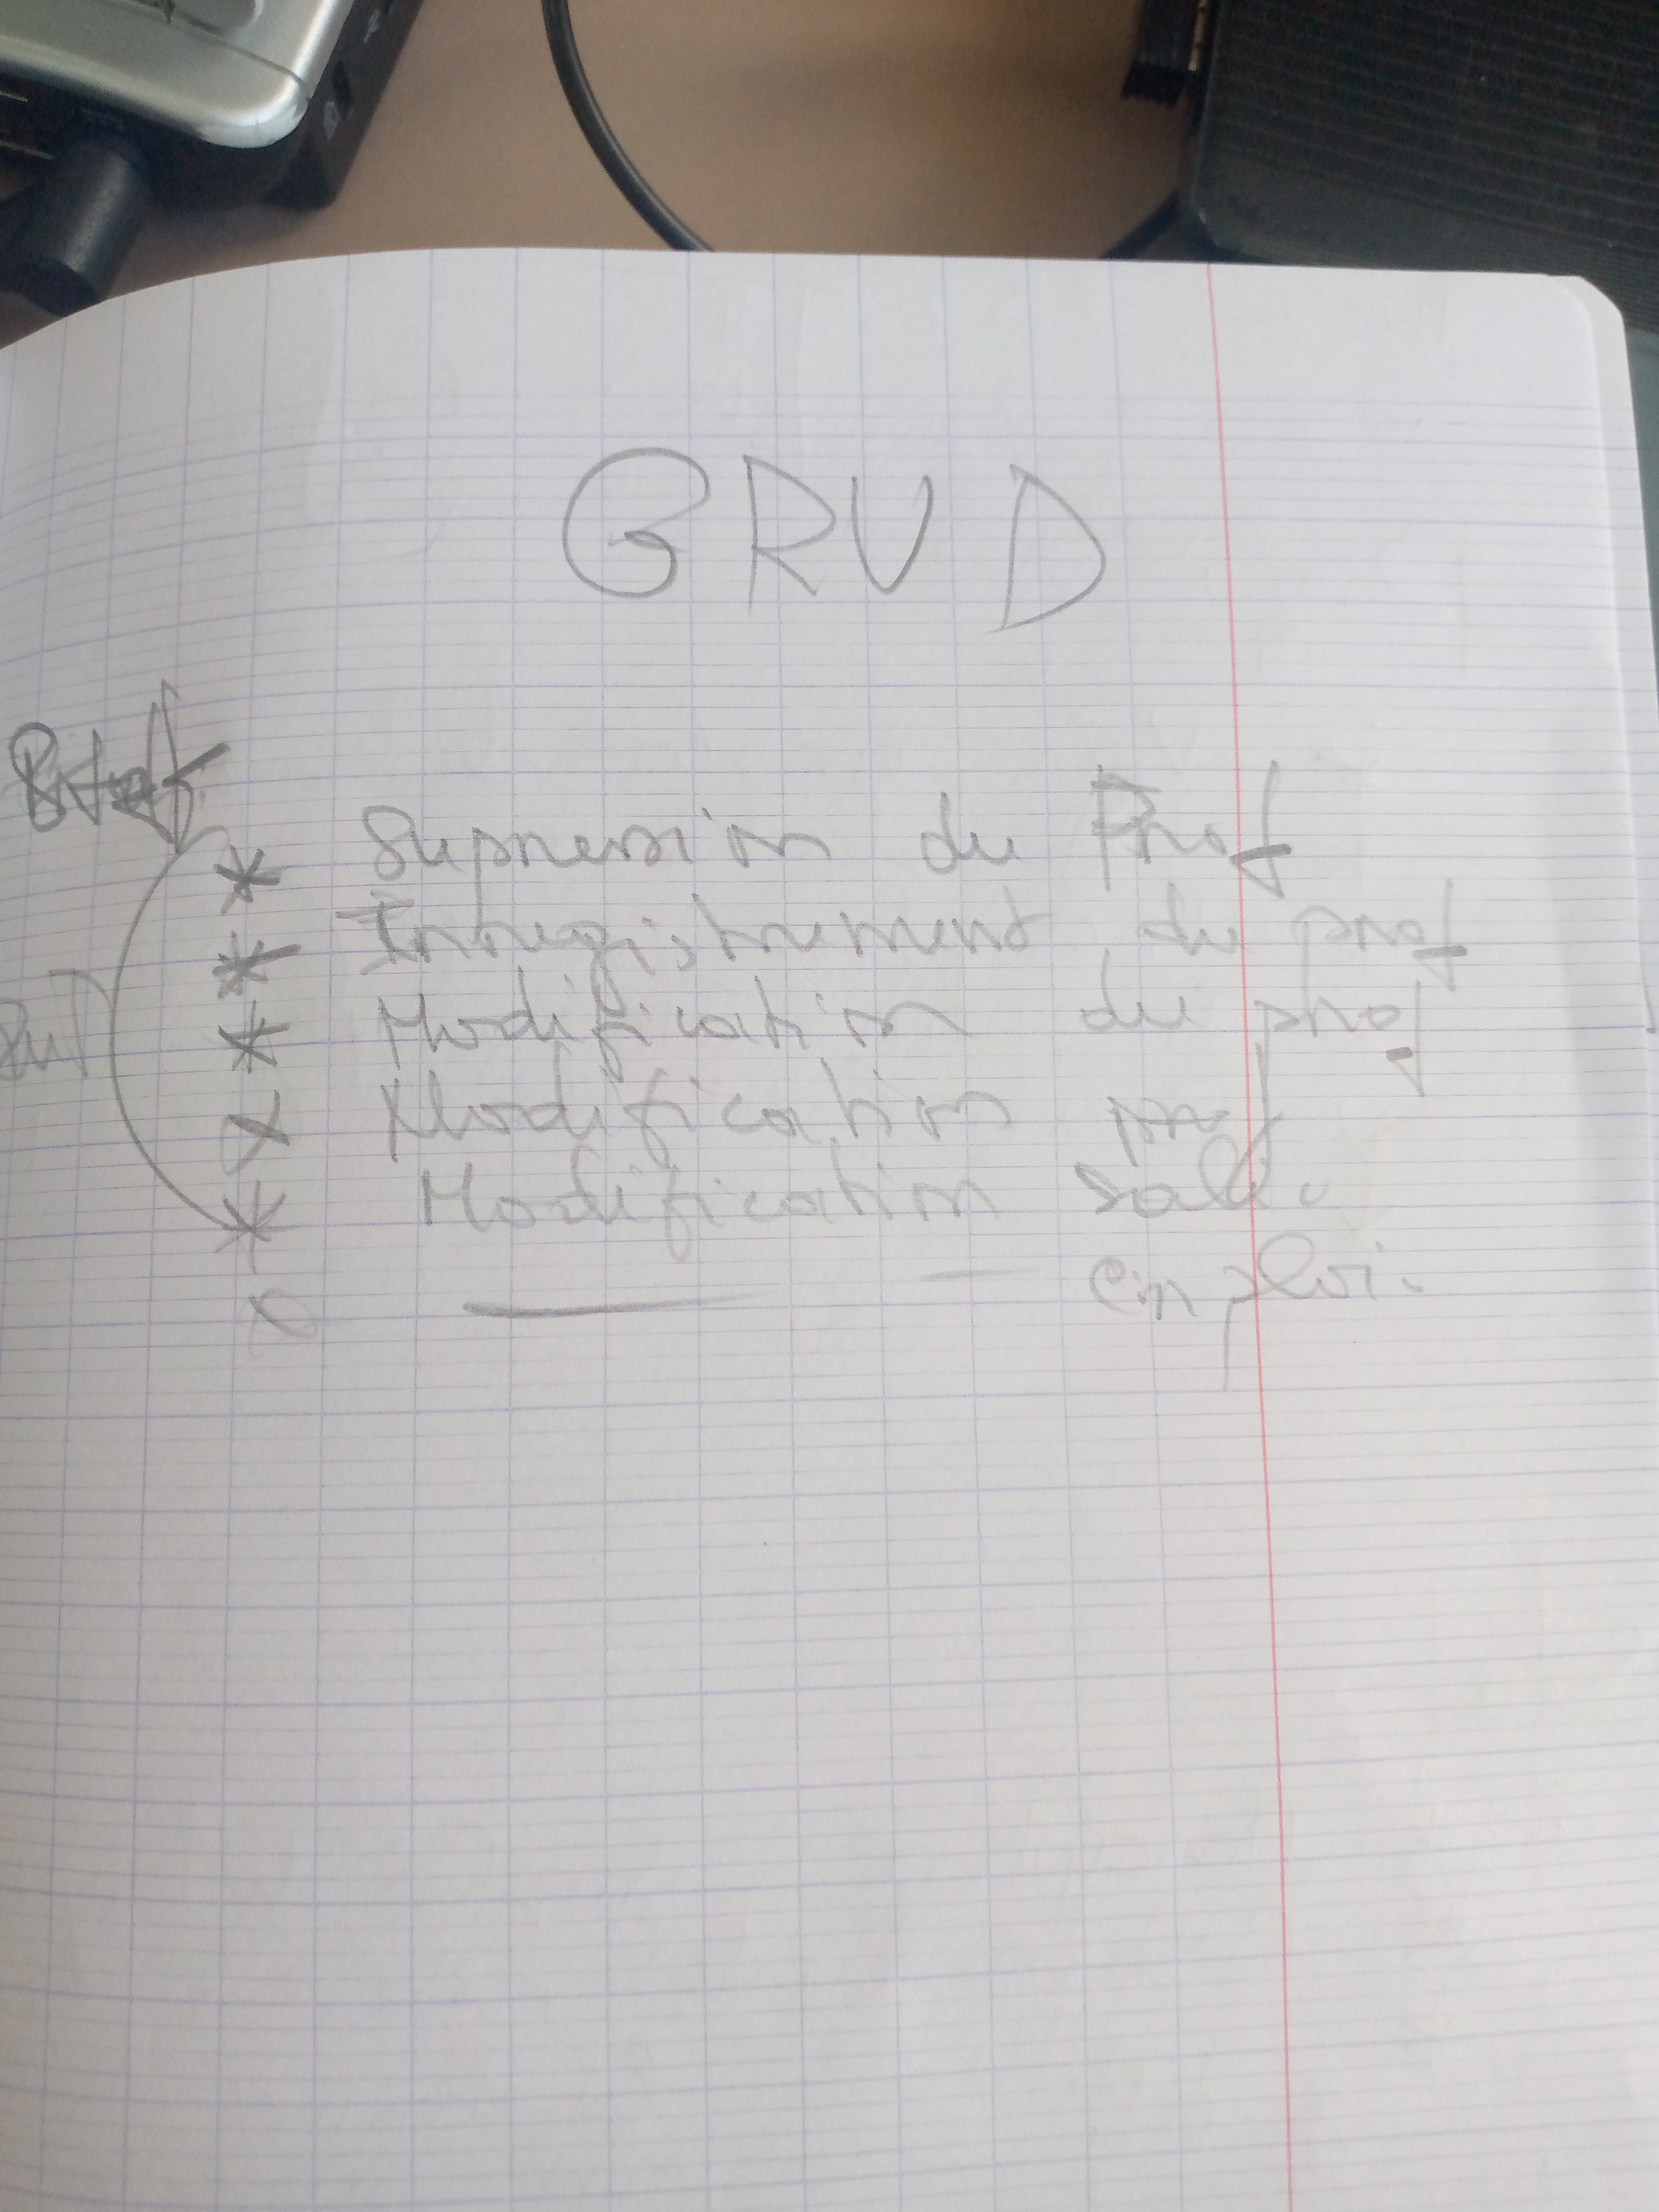 GRUD
* Supression du Prof
* Inregistrement du prof
* Modification du prof
* Modification prof
* Modification salle
emploi.